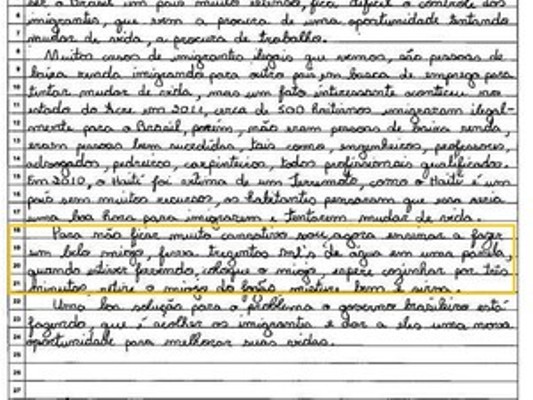 ser o Brasil um país muito extenso, fica difícil o controle dos
6 imigrantes, que vem a procura de uma oportunidade tentando
7 mudar de vida, a procura de trabalho.
8 Muitos casos de imigrantes ilegais que vemos, são pessoas de
9 baixa renda imigrando para outro país em busca de emprego para
10 tentar mudar de vida, mas um fato interessante aconteceu no
11 estado do Acre em 2011, cerca de 500 haitianos imigraram ilegal-
12 mente para o Brasil, porém, não eram pessoas de baixa renda,
13 eram pessoas bem sucedidas, tais como, engenheiros, professores,
14 advogados, pedreiros, carpinteiros, todos profissionais qualificados.
15 Em 2010, o Haiti foi vítima de um Terremoto, como o Haiti é um
16 país sem muitos recursos, os habitantes pensaram que essa seria
17 uma boa hora para imigrarem e tentarem mudar de vida.
18 Para não ficar muito cansativo, vou agora ensinar a fazer
19 um belo miojo, ferva trezentos ml's de água em uma panela,
20 quando estiver fervendo, coloque o miojo, espere cozinhar por três
21 minutos, retire o miojo do fogão, misture bem e sirva.
22 Uma boa solução para o problema o governo brasileiro está
23 fazendo, que é acolher os imigrantes e dar a eles uma nova
24 oportunidade para melhorar suas vidas.
25
26
27